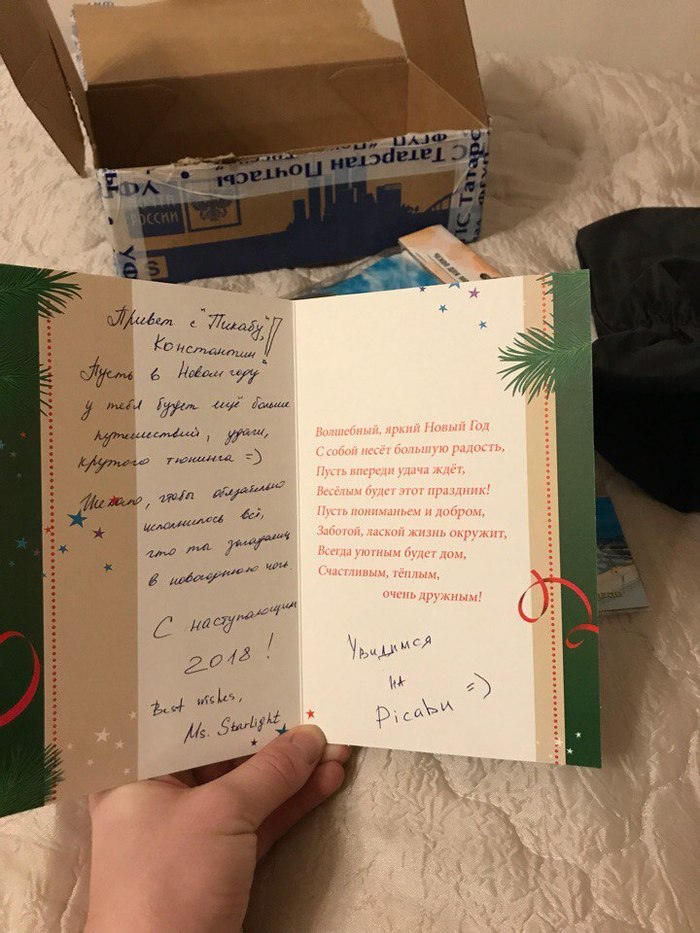 С Татарстан Почтасы
ФГУП
РОССИИ
Привет с "Пикабу",
Константин!
Пусть в Новом году
у тебя будет ещё больше
путешествий, удачи,
крутого тюнинга =)
Желаю, чтобы обязательно
исполнилось всё,
что ты загадаешь
в новогоднюю ночь.
С наступающим
2018!
Best wishes,
Ms. Starlight
Волшебный, яркий Новый Год
С собой несёт большую радость,
Пусть впереди удача ждёт,
Весёлым будет этот праздник!
Пусть пониманьем и добром,
Заботой, лаской жизнь окружит,
Всегда уютным будет дом,
Счастливым, тёплым,
очень дружным!
Увидимся
на
Picabu =)